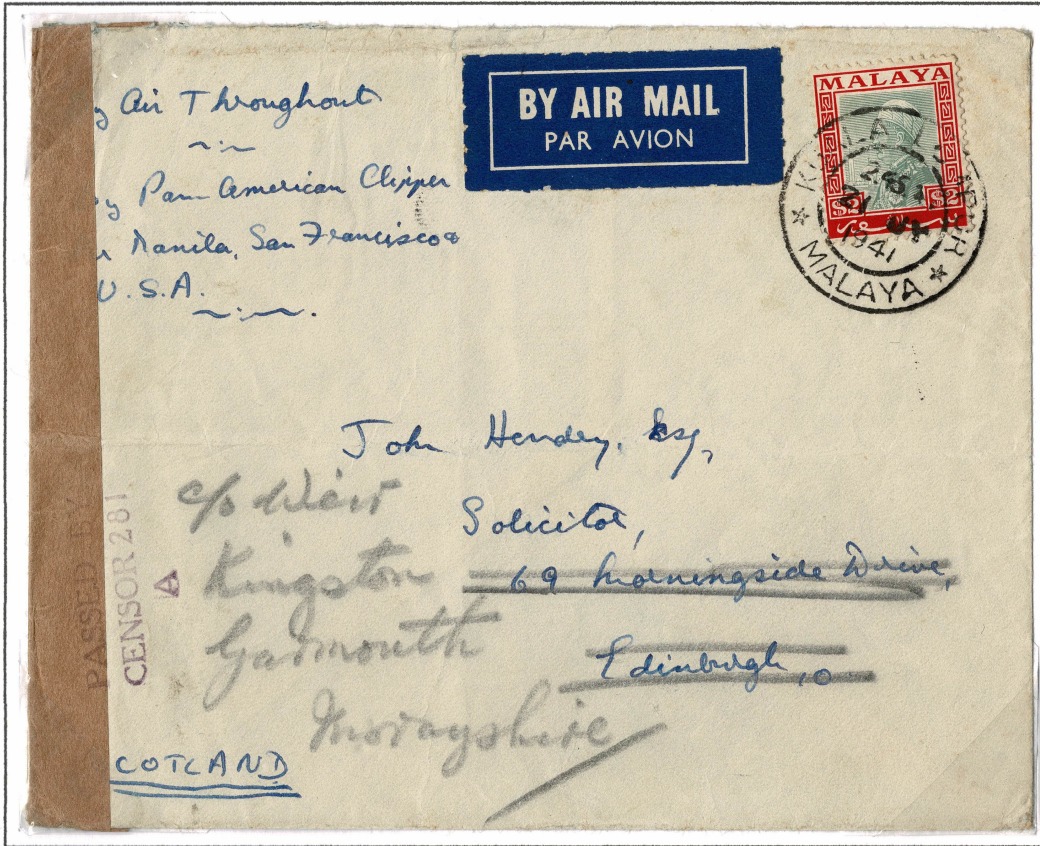 y Air Throughout
y Pan American Clipper
Manila, San Francisco &
U.S.A.
BY AIR MAIL
PAR AVION
MALAYA
$2 $2
سلاڠور
KUALA LUMPUR
2 45
21 JY
1941
MALAYA
John Hendry, Esq,
Solicitor,
69 Morningside Drive,
Edinburgh, 10
c/o Weir
Kingston
Garmouth
Morayshire
COTLAND
PASSED BY
CENSOR 281.
A